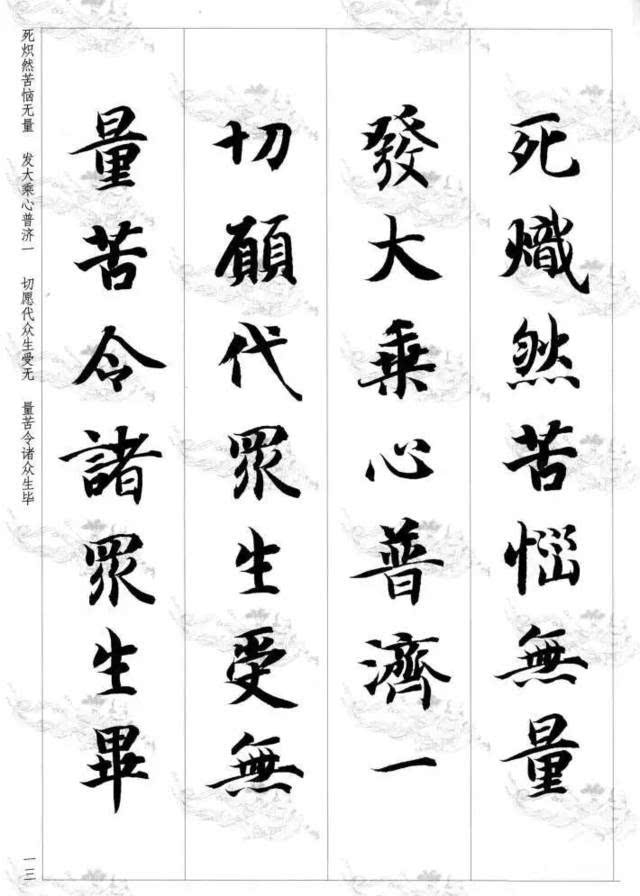 死熾然苦惱無量
發大乘心普濟一
切願代眾生受無
量苦令諸眾生畢
死炽然苦恼无量 发大乘心普济一 切愿代众生受无 量苦令诸众生毕
一三